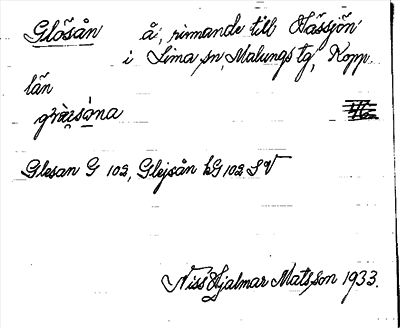 Glösån å, rinnande till Tässjön
i Lima sn, Malungs tg, Kopp.
län
Glesan G 102, Glejsån kG 102 SV
Niss Hjalmar Matsson 1933.